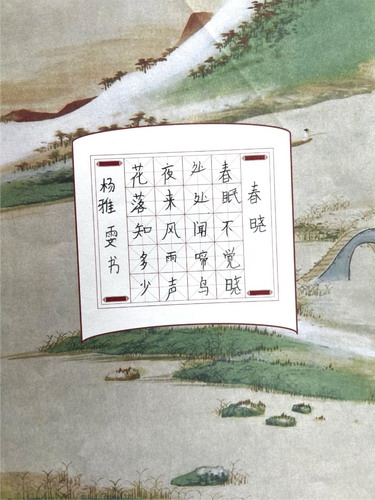 春晓
春眠不觉晓
处处闻啼鸟
夜来风雨声
花落知多少
杨雅雯书